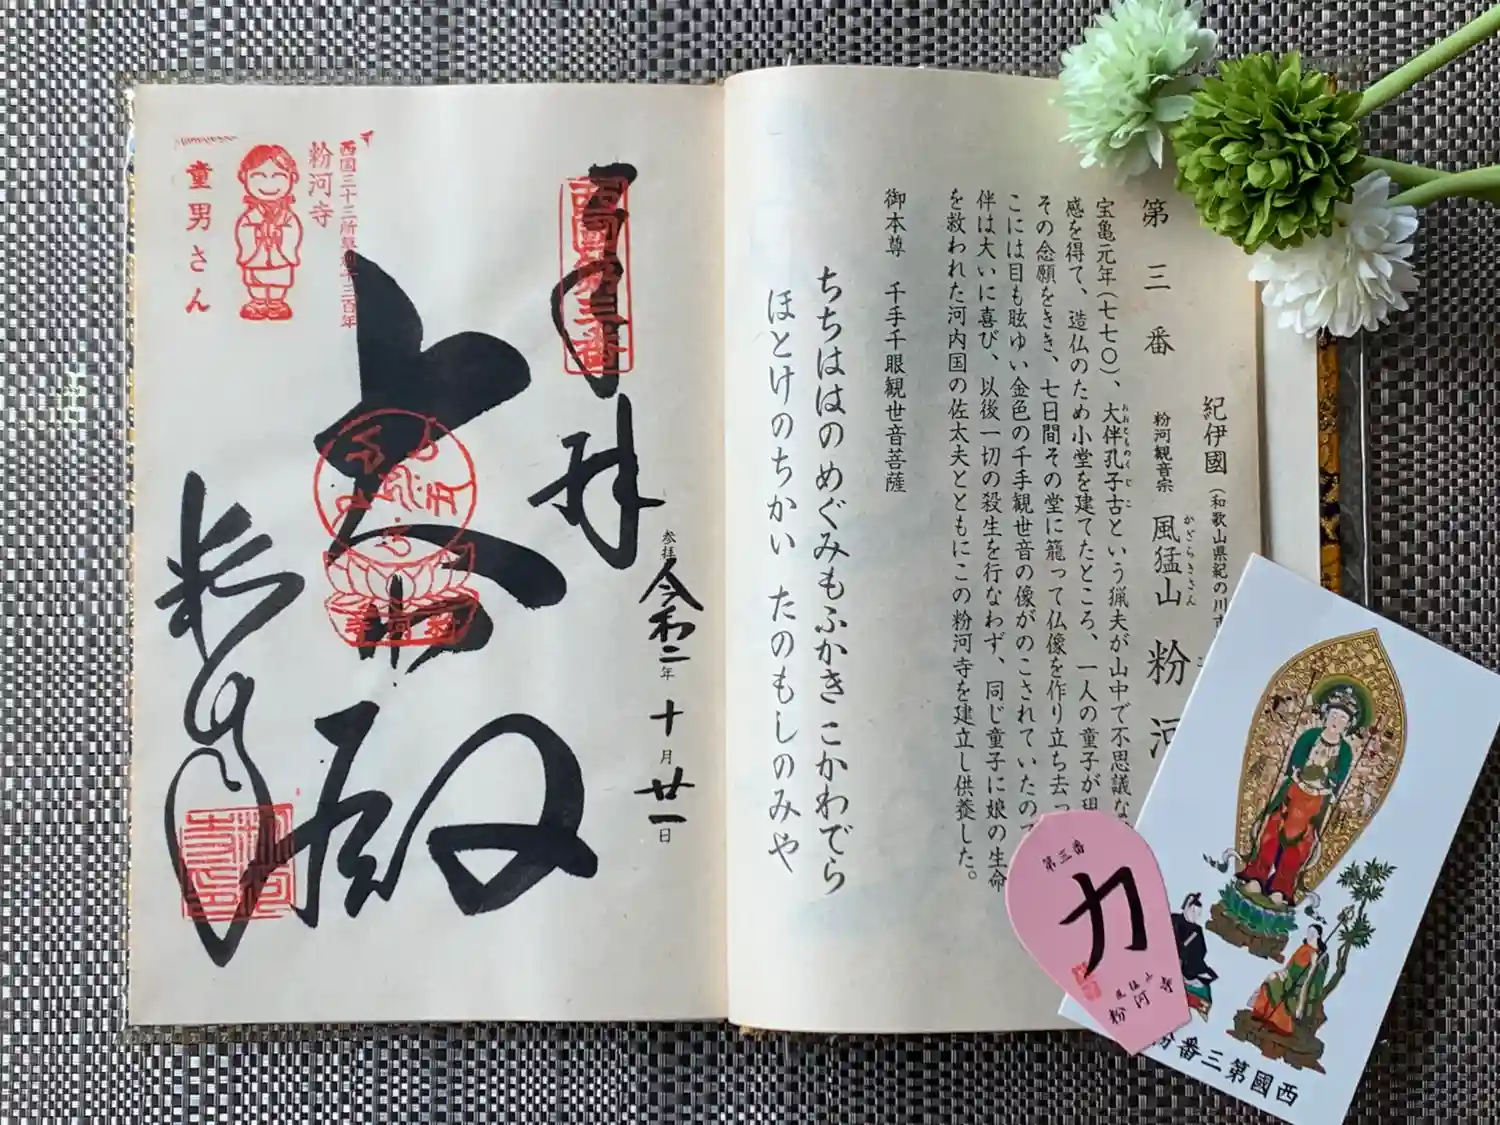 紀伊國(和歌山県紀の川市
第三番 粉河観音宗 風猛山 粉河
かざらきさん
宝亀元年(七七〇)、大伴孔子古という猟夫が山中で不思議な
おおとものくじこ
感を得て、造仏のため小堂を建てたところ、一人の童子が現
その念願をきき、七日間その堂に籠って仏像を作り立ち去っ
こには目も眩ゆい金色の千手観世音の像がのこされていたので
伴は大いに喜び、以後一切の殺生を行なわず、同じ童子に娘の生命
を救われた河内国の佐太夫とともにこの粉河寺を建立し供養した。
御本尊 千手千眼観世音菩薩
ちちははのめぐみもふかきこかわでら
ほとけのちかい たのもしのみや
奉拝
西國第三番
参拝 令和二年十月廿一日
大悲殿
粉河寺
粉河寺
西国三十三所草創千三百年
粉河寺
童男さん
第三番
力
風猛山
粉河寺
西國第三番粉